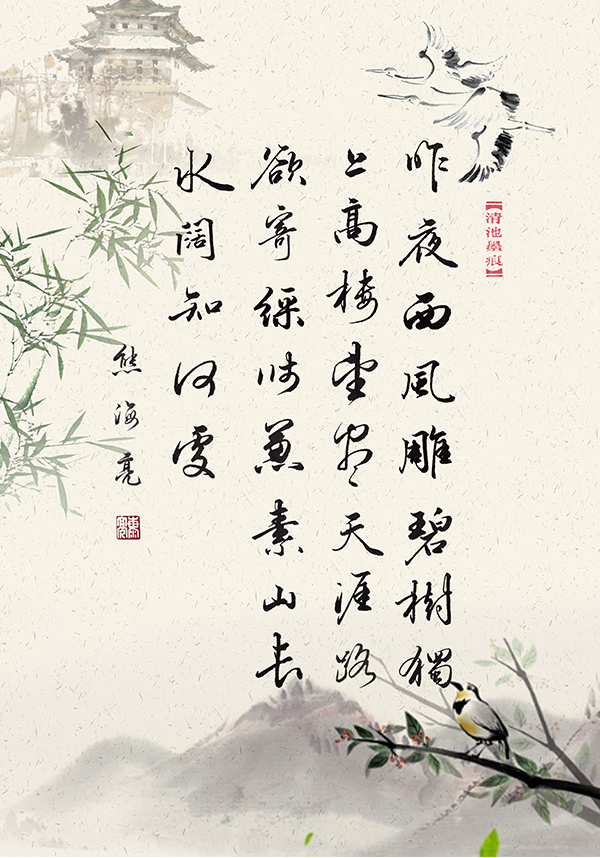 【清池墨痕】
昨夜西風雕碧樹獨
上高樓望尽天涯路
欲寄綵牋兼素山長
水闊知何處
熊海亮